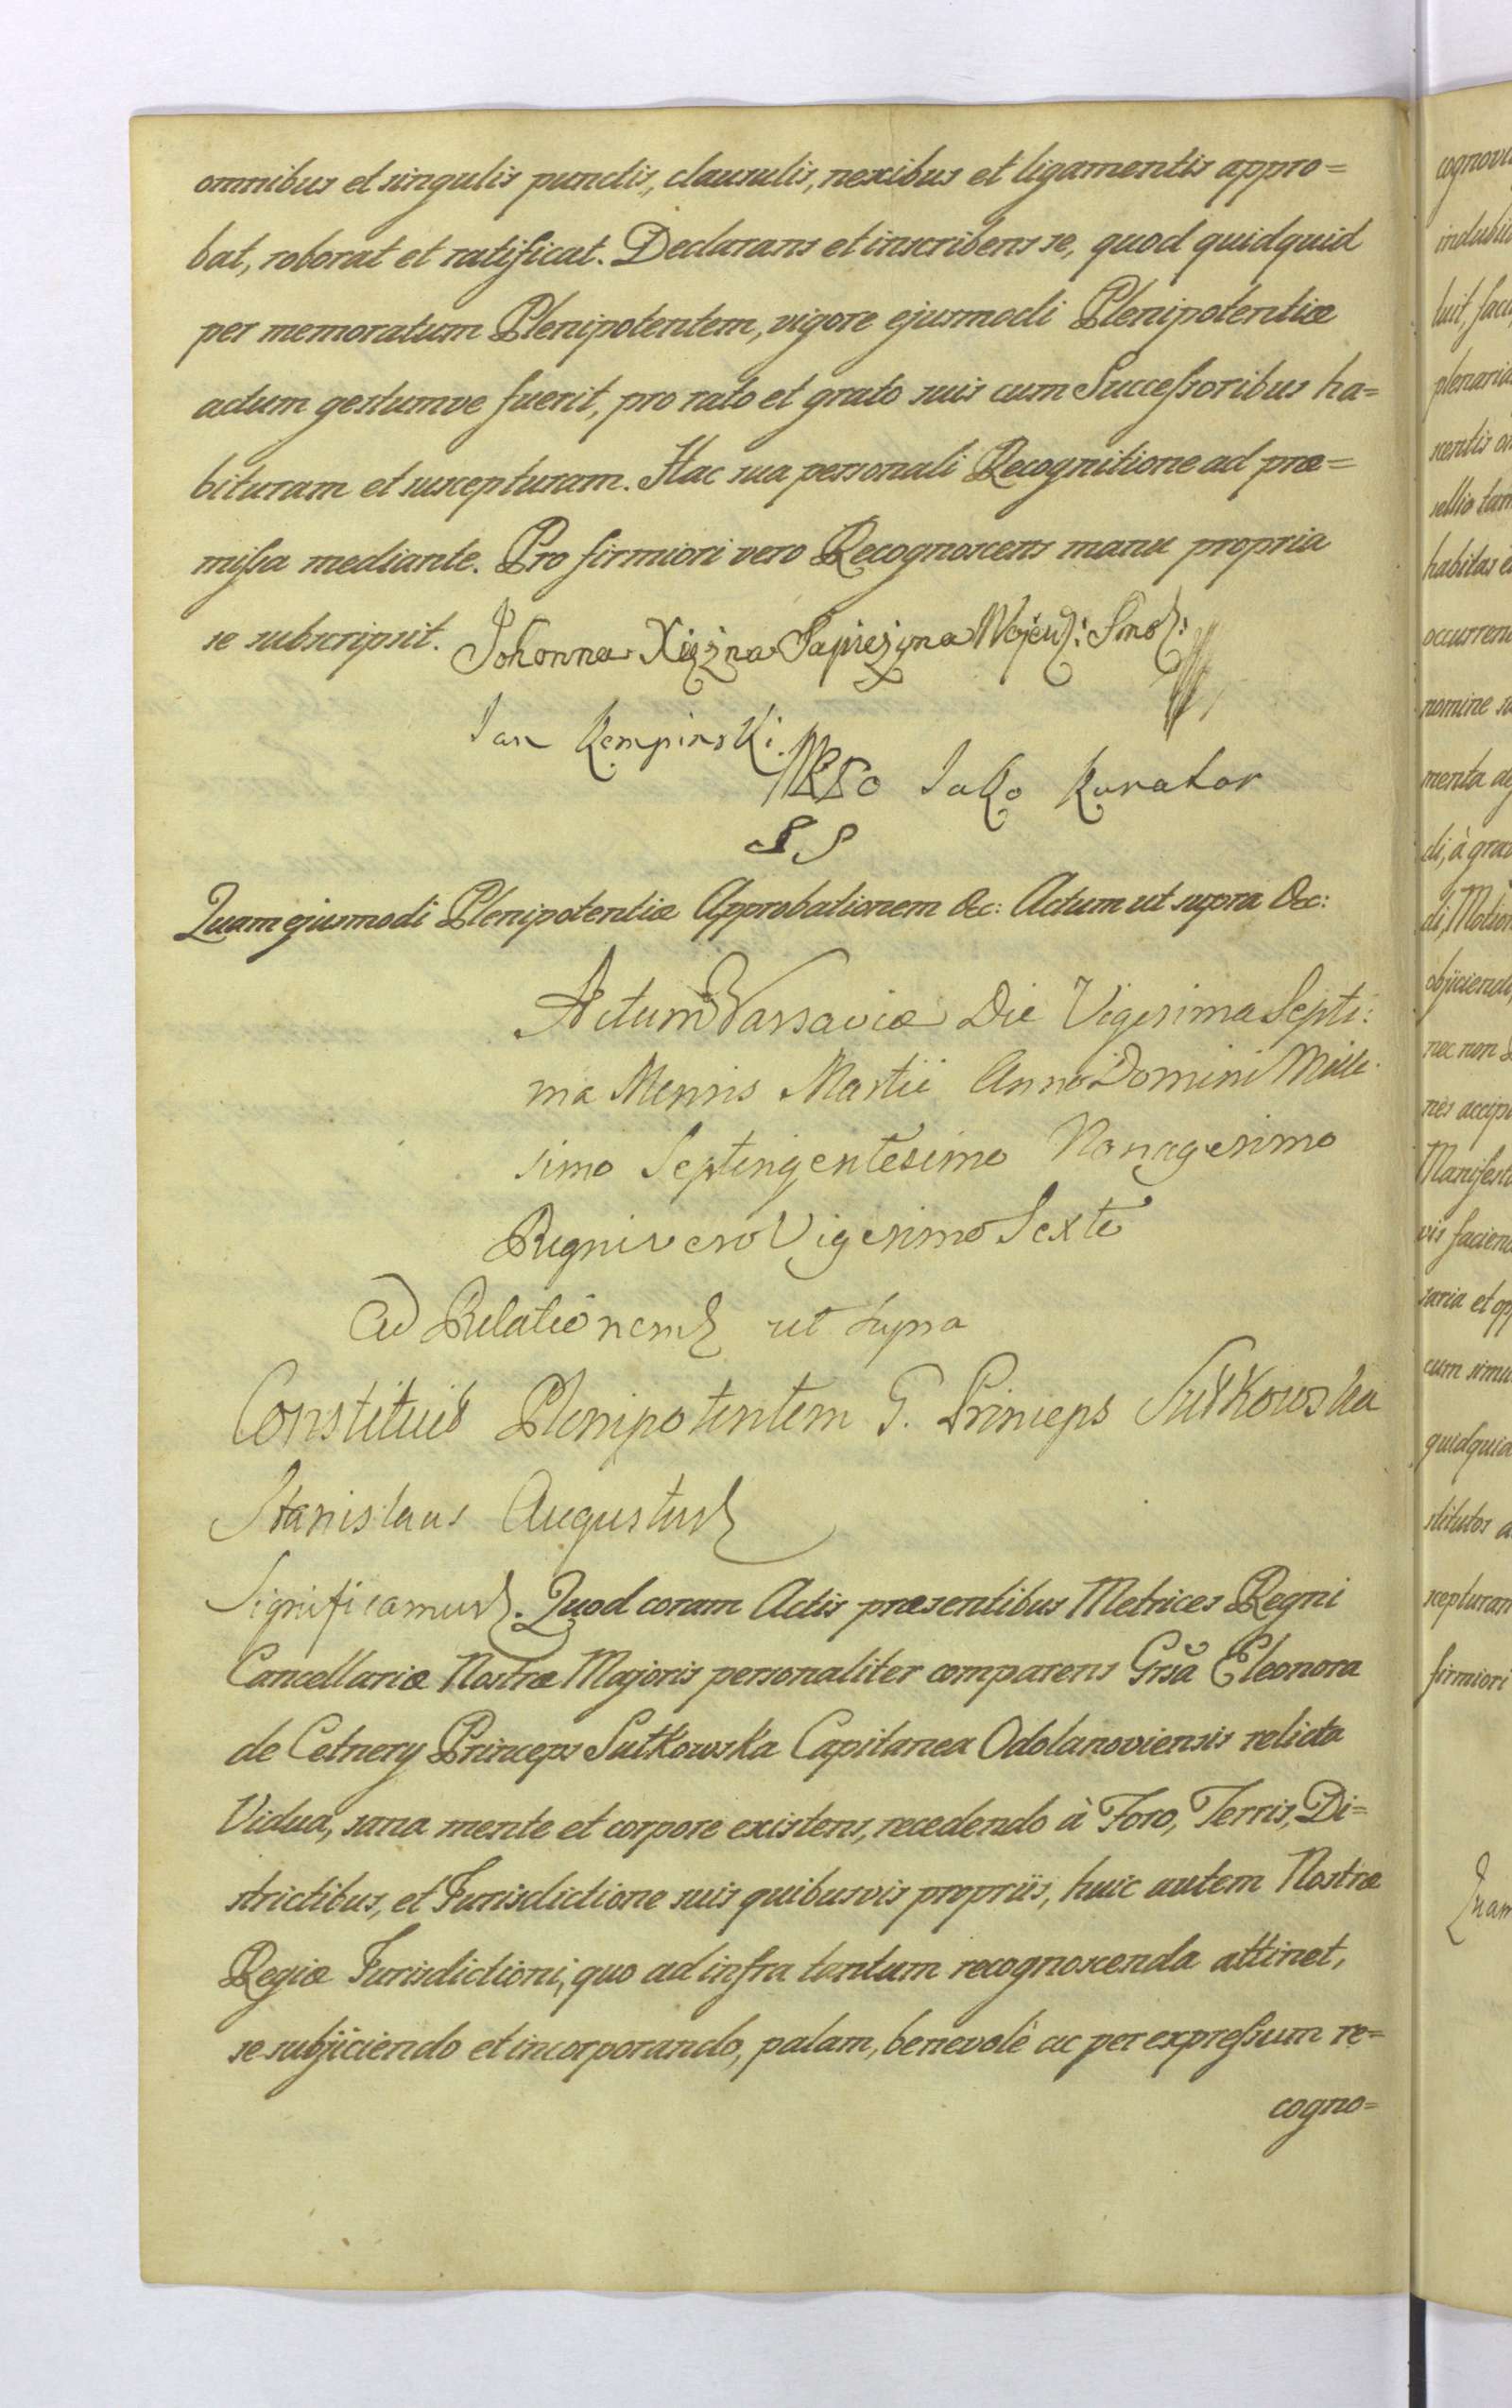 omnibus et singulis punctis, clausulis, nexibus et ligamentis appro=
bat, roborat et ratificat. Declarans et inscribens se, quod quidquid
per memoratum Plenipotentem, vigore ejusmodi Plenipotentiæ
actum gestumve fuerit, pro rato et grato suis cum Successoribus ha=
bituram et suscepturam. Hac sua personali Recognitione ad præ=
missa mediante. Pro firmiori vero Recognoscens manu propria
se subscripsit. Johonna Xiężna Sapieżyna Wojew: Smol:
Jan Kempinski Jako Kurator
Quam ejusmodi Plenipotentiæ Approbationem &c: Actum ut supra &c:
Actum Varsaviæ Die Vigesima Septi:
ma Mensis Martii Anno Domini Mille:
simo Septingentesimo Nonagesimo
Regni vero Vigesimo Sexto
Ad Relationem ut supra
Constituit Plenipotentem G. Princeps Sułkowska
Stanislaus Augustus
Significamus. Quod coram Actis præsentibus Metrices Regni
Cancellariæ Nostræ Majoris personaliter comparens Grsã Eleonora
de Cetnery Princeps Sułkowska Capitanea Odolanoviensis relicta
Vidua, sana mente et corpore existens, recedendo à Foro, Terris, Di=
strictibus, et Jurisdictione suis quibusvis propriis, huic autem Nostræ
Regiæ Jurisdictioni, quo ad infra tantum recognoscenda attinet,
se subjiciendo et incorporando, palam, benevolè ac per expressum re=
cogno=